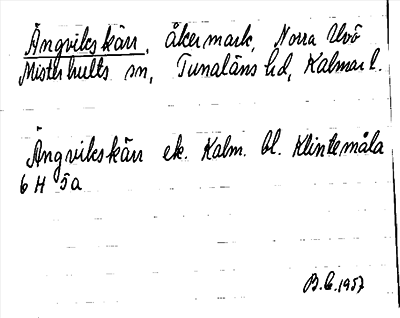 Ängvikskärr, åkermark, Norra Uvö
Misterhults sn, Tunaläns hd, Kalmar l.
Ängvikskärr ek. Kalm. bl. Klintemåla
6 H 5a
B.C. 1957